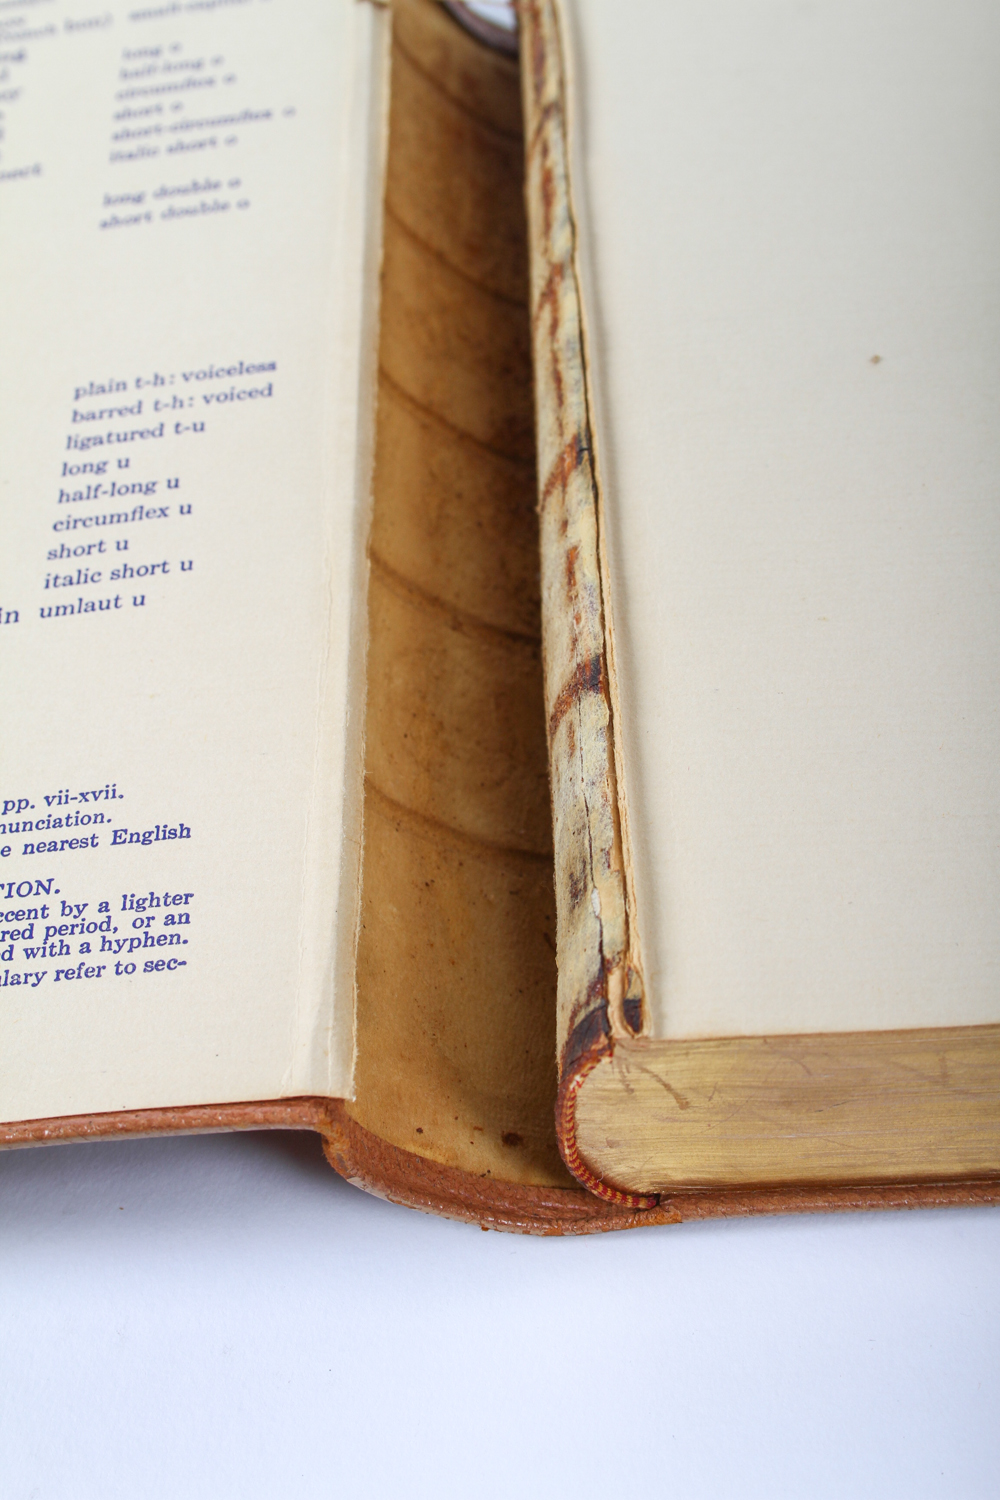 small-capital
long o
half-long o
circumflex o
short o
short-circumflex o
italic short o
long double o
short double o
plain t-h: voiceless
barred t-h: voiced
ligatured t-u
long u
half-long u
circumflex u
short u
italic short u
in umlaut u
pp. vii-xvii.
nunciation.
e nearest English
TION.
ccent by a lighter
red period, or an
d with a hyphen.
ulary refer to sec-